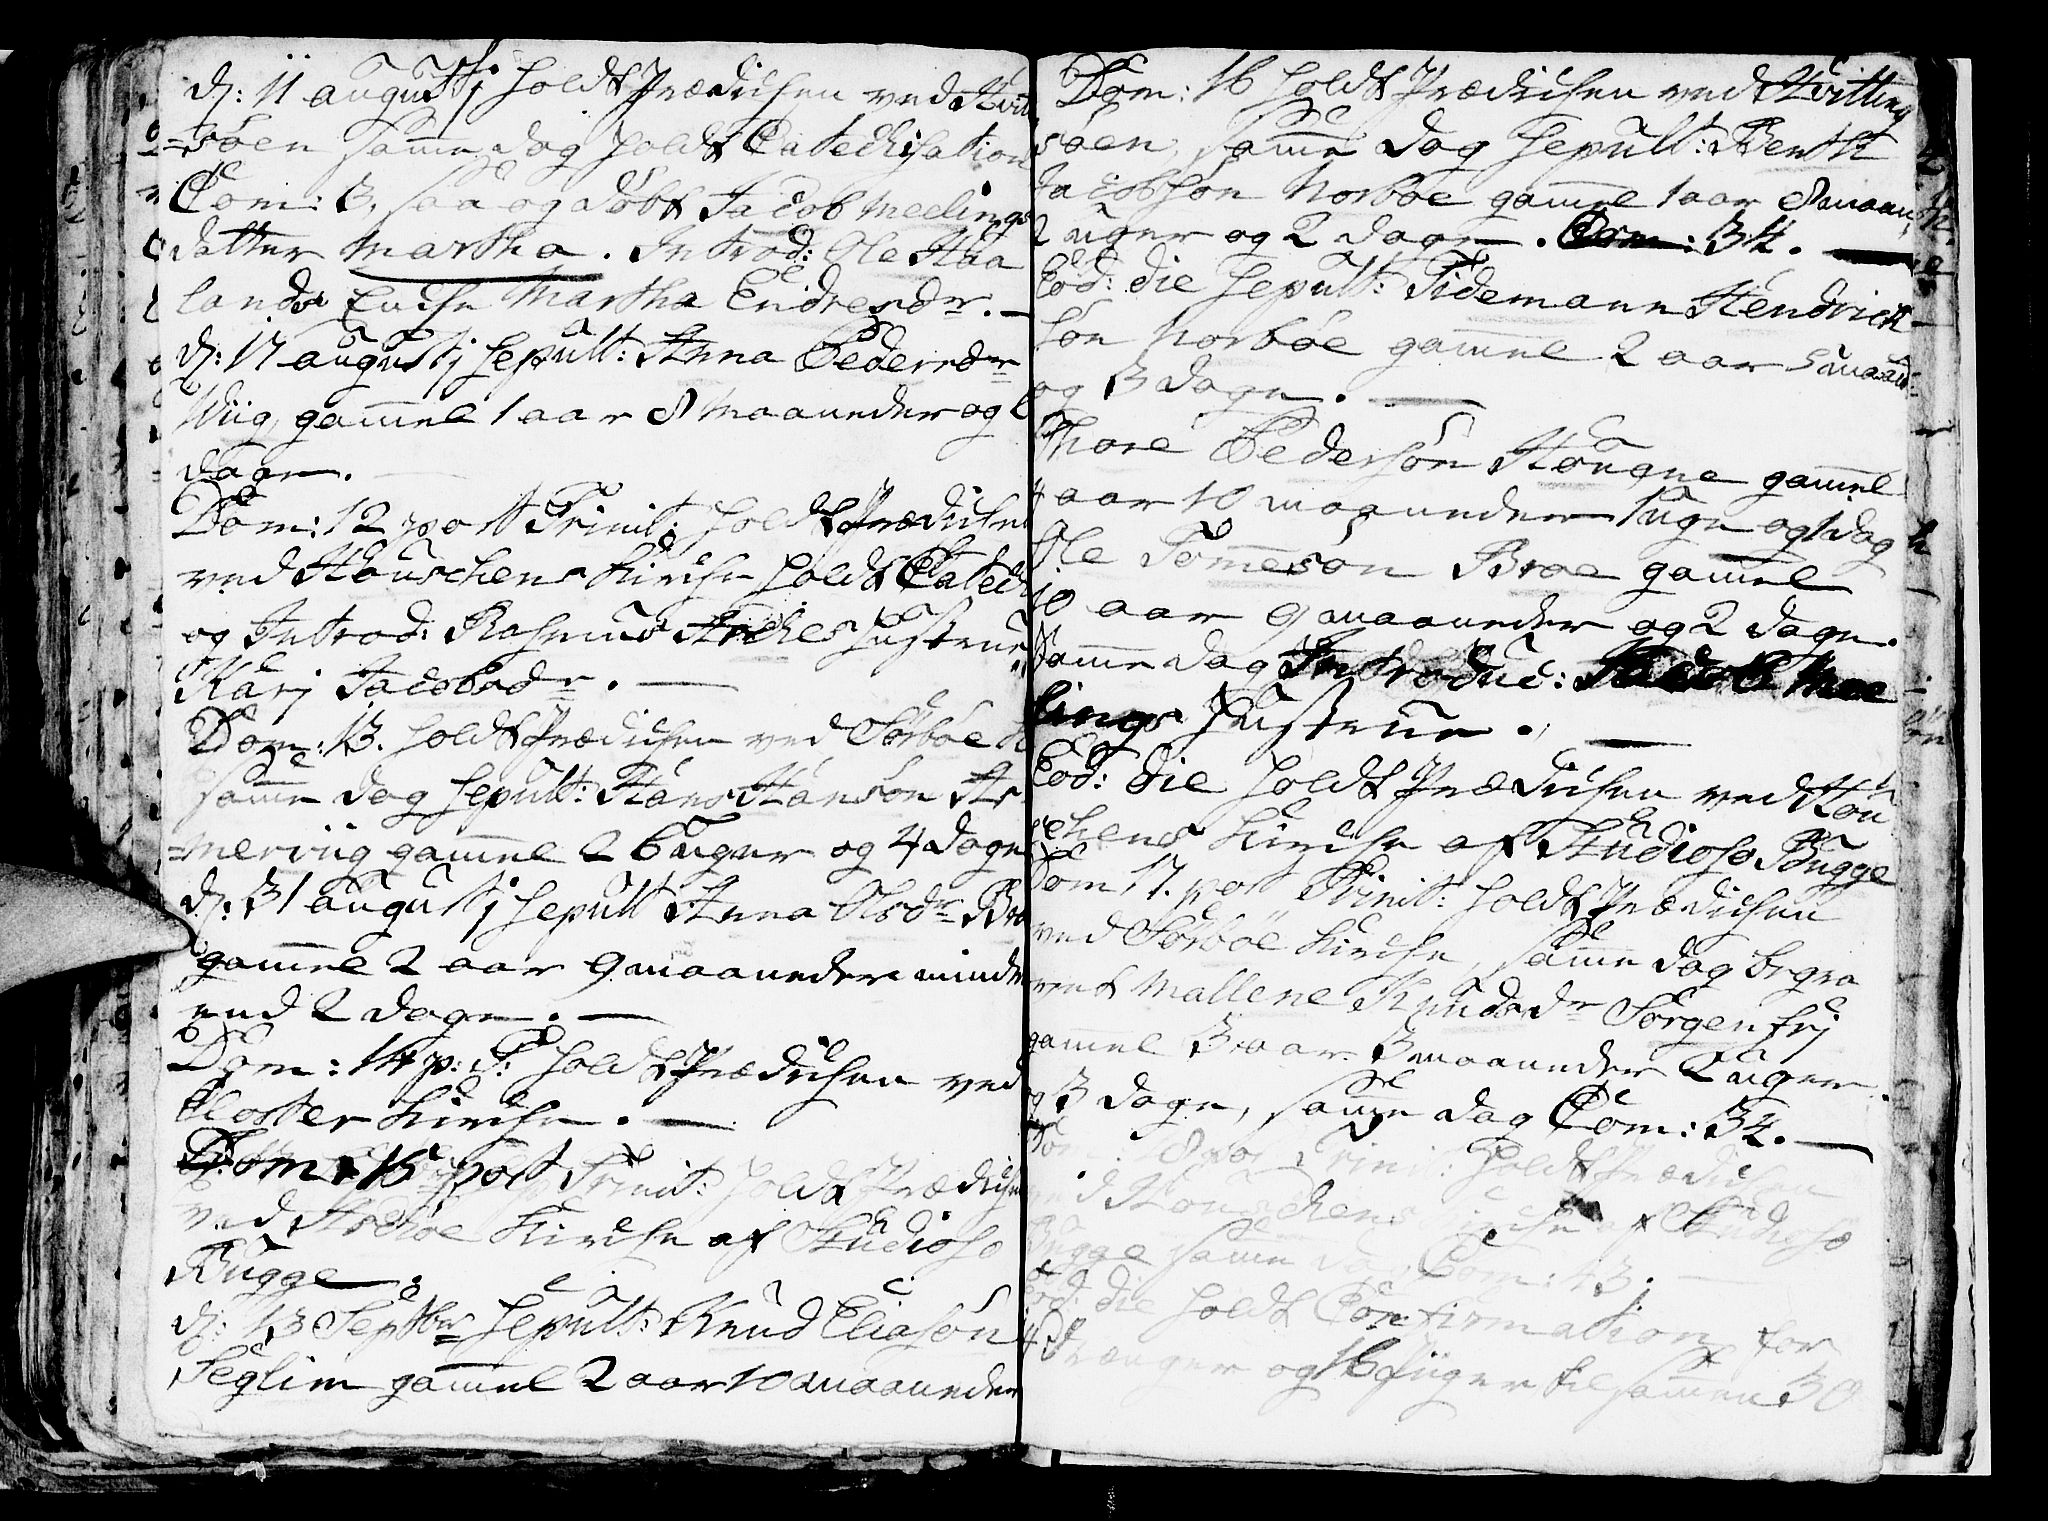 d: 11 augustj holdt Prædichen ved Hvit
söen samme dag holdt Catechisation
Com: 3, saa og döbt Jacob Meelings
datter Martha. Introd: Ole Haa
lands Enche Martha Endresdr. —
d: 17 augustj sepult: Anna Pedersdr
Wiig gamel 1 aar 8 maaneder og
dage.
Dom: 12 post Trinit: holdt Prædichen
ved Hauschens Kirche holdt Catech
og Introd: Rasmus Askes hustrue
Karj Jacobsdr. —
Dom: 13. holdt Prædichen ved Sörböe K
samme dag sepult: Hans Hansön Ha
merviig gamel 26 uger og 4 dage
d: 31 augustj sepult Anna Olsdr Bro
gamel 2 aar 9 maaneder mindr
end 2 dage. —
Dom: 14 p: T: holdt Prædichen ved
Closter Kirche. —
Dom: 15 post Trinit: holdt Prædiche
ved Askiöe Kirche af Studioso
Bugge.
d: 13 Septbr sepult: Knud Eliasön
Seglim gamel 2 aar 10 maaneder
Dom: 16 holdt Prædichen ved Hvitting
söen, samme dag sepult: Berthe
Jacobsön Norböe gamel 1 aar 8 maan
2 uger og 2 dage. Com: 34. —
Eod: die sepult: Tidemann Hendrich
sön Norböe gamel 2 aar 5 maan
og 3 dage. —
Thore Pedersön Hougne gamel
4 aar 10 maaneder 1 uge og 1 dag
Ole Tomesön Broe gamel
10 aar 9 maaneder og 2 dage.
Samme dag Introduc: Jacob Mee
lings hustrue. —
Eod: die holdt Prædichen ved Hau
schens Kirche af Studioso Bugge
Dom 17. post Trinit: holdt Prædichen
ved Sörböe Kirche, samme dag begra
vet Mallene Knudsdr Sorgenfrj
gamel 3 aar 3 maaneder 2 uger
og 3 dage, samme dag Com: 34. —
Dom 18 post Trinit: holdt Prædichen
ved Hauschens Kirche af Studioso
Bugge samme dag Com: 43. —
Eod: die holdt Confirmation for
14 Drenger og 16 Piiger tilsamen 30